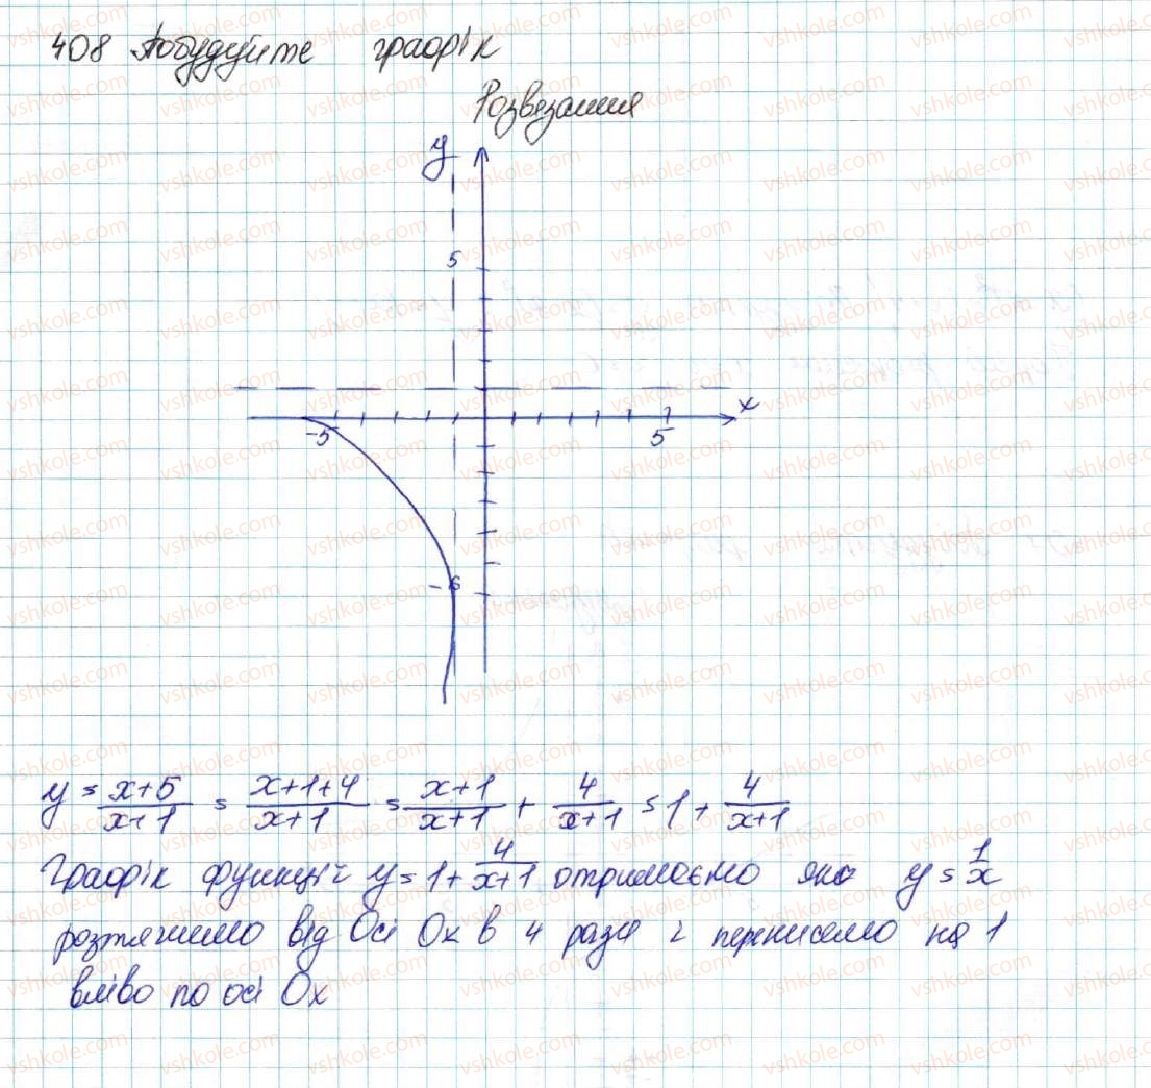 408 Побудуйте графік
Розвязання
y
5
x
-5
5
-6
y = x+5/x+1 = x+1+4/x+1 = x+1/x+1 + 4/x+1 = 1 + 4/x+1
Графік функції y = 1 + 4/x+1 отримаємо яко y = 1/x
розтягнемо від Осі Ox в 4 рази і перенисемо на 1
вліво по осі Ox
vshkole.com